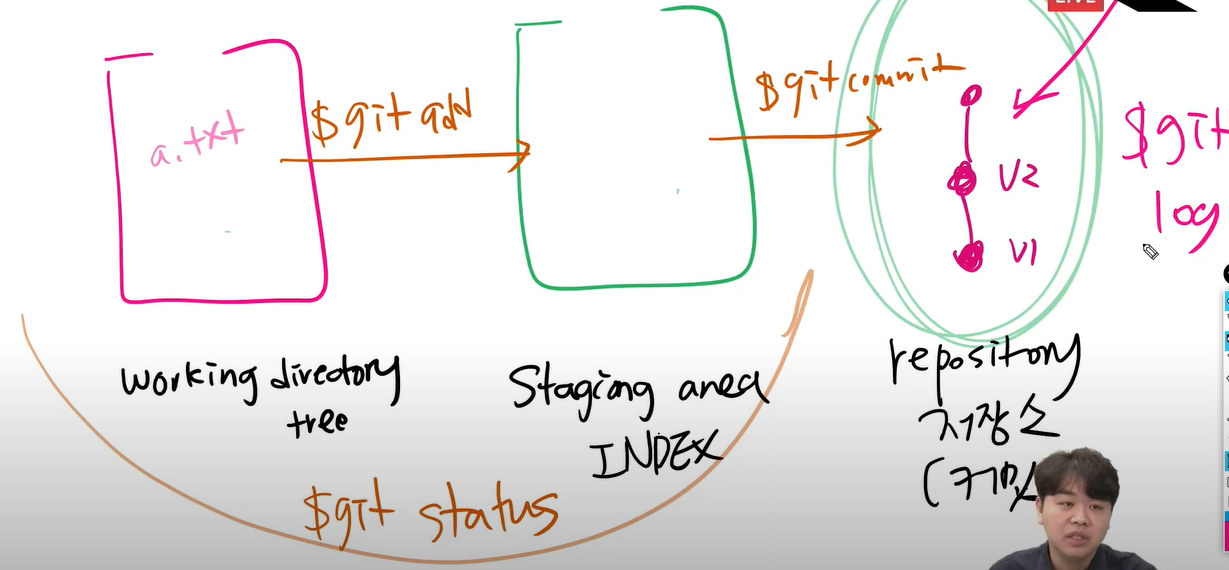 LIVE
a.txt
$git add
$git commit
V2
V1
$git
log
working directory
tree
Staging area
INDEX
repository
저장소
(커밋
$git status